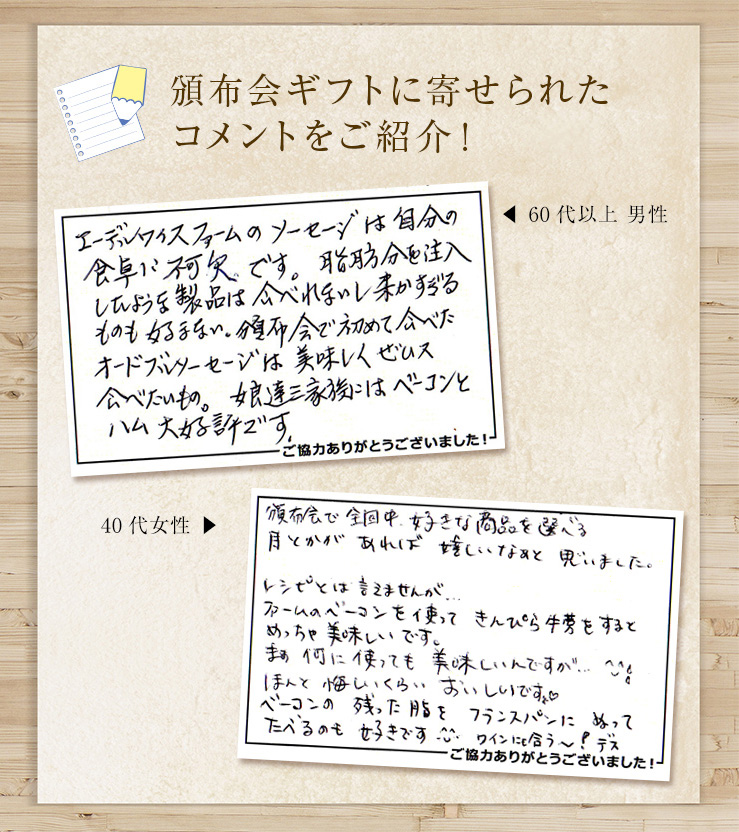 頒布会ギフトに寄せられた
コメントをご紹介！
◀ 60代以上 男性
エーデルワイスファームのソーセージは自分の
食卓に不可欠。です。脂肪分を注入
したような製品は食べれないし柔かすぎる
ものも好まない。頒布会で初めて食べた
オードブルソーセージは美味しくぜひス
食べたいもの。娘達三家族にはベーコンと
ハム大好評です。
ご協力ありがとうございました！
40代女性 ▶
頒布会で全回中、好きな商品を選べる
月とかが あれば 嬉しいなぁと 思いました。
レシピとは言えませんが…
ファームのベーコンを使って きんぴら牛蒡をすると
めっちゃ美味しいです。
まぁ何に使っても 美味しいんですが…
ほんと 悔しいくらい おいしいです♡
ベーコンの 残った脂を フランスパンに ぬって
たべるのも 好きです ワインにも合う〜！デス
ご協力ありがとうございました！